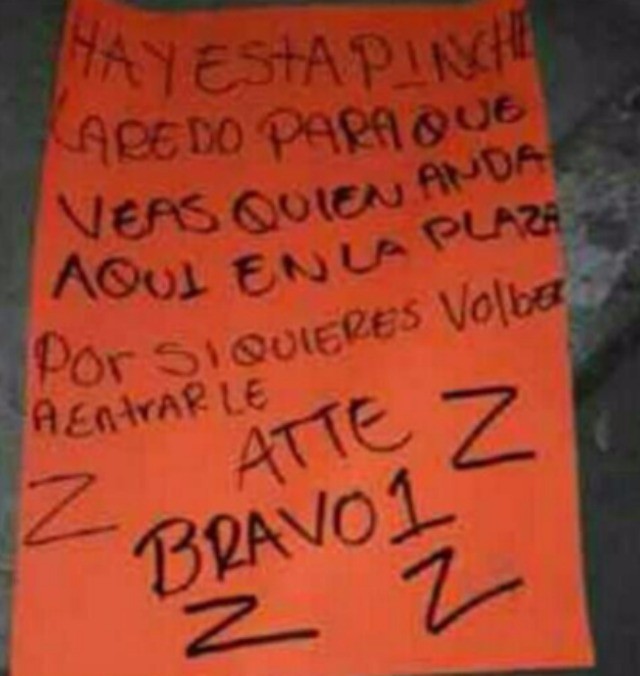 HAY ESTA PINCHE
LAREDO PARA QUE
VEAS QUIEN ANDA
AQUI EN LA PLAZA
POr SI QUIERES VOlbER
A EntrAR LE
ATTE Z
Z
BRAVO 1
Z Z